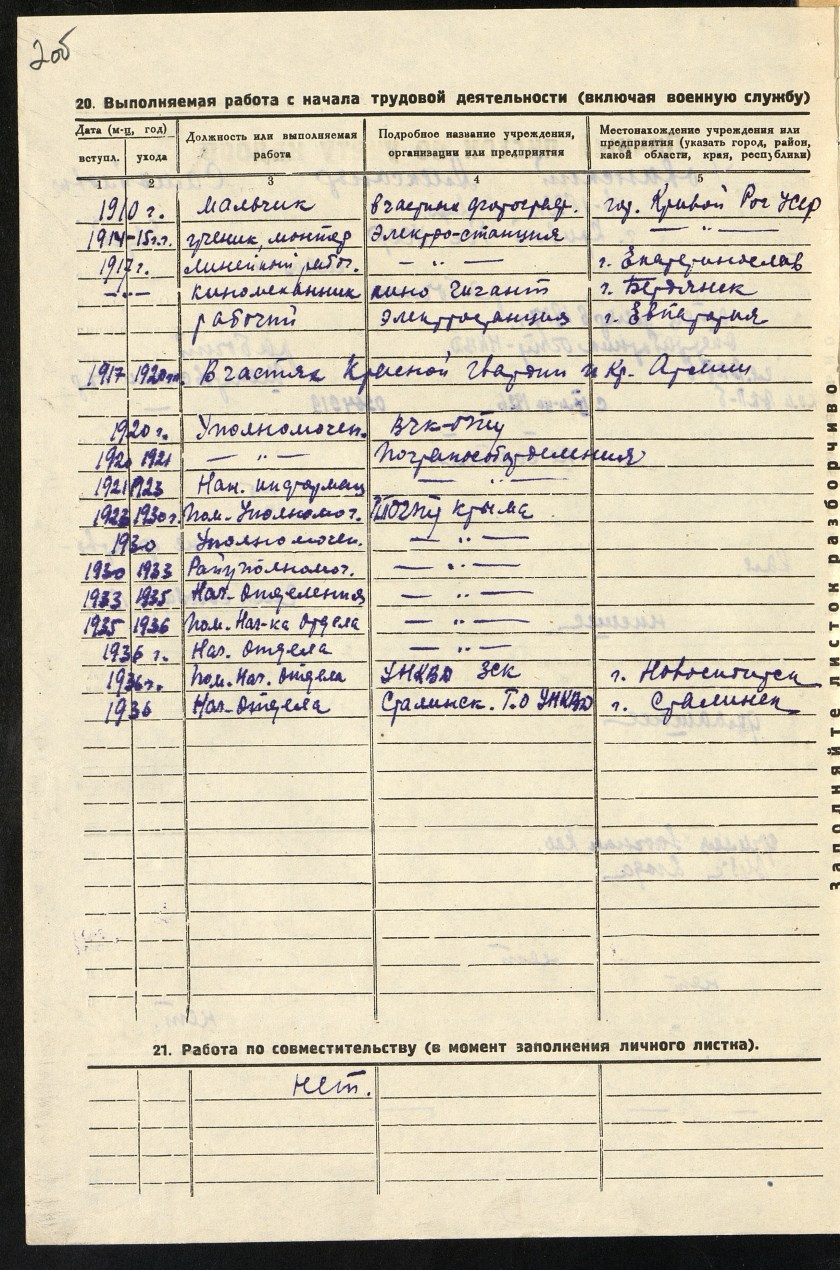 2об
20. Выполняемая работа с начала трудовой деятельности (включая военную службу)
Дата (м-ц, год)
вступл. ухода
Должность или выполняемая
работа
Подробное название учреждения,
организации или предприятия
Местонахождение учреждения или
предприятия (указать город, район,
какой области, края, республики)
1 2 3 4 5
1910 г. мальчик в частных фотограф. гор. Кривой Рог УССР
1914-15 г.г. ученик, монтер Электро-станция — " —
1917 г. линейный рабоч. — " — г. Екатеринослав
— " — киномеханник кино Гигант г. Бердянск
рабочий Электростанция г. Евпатория
1917 1920 гг. В частях Красной Гвардии и Кр. Армии
1920 г. Уполномочен. ВЧК-ОГПУ
1920 1921 — " — Погранособотделения
1921 1923 Нач. информац — " —
1923 1930 г. Пом. Уполномоч. ГПУ Крыма
1930 Уполномочен. — " —
1930 1933 Райуполномоч. — " —
1933 1935 Нач. Отделения — " —
1935 1936 Пом. Нач-ка Отдела — " —
1936 г. Нач. Отдела — " —
1936 г. Пом. Нач. Отдела УНКВД ЗСК г. Новосибирск
1936 Нач. Отдела Сталинск. Г.О УНКВД г. Сталинск
Заполняйте листок разборчиво
21. Работа по совместительству (в момент заполнения личного листка).
нет.